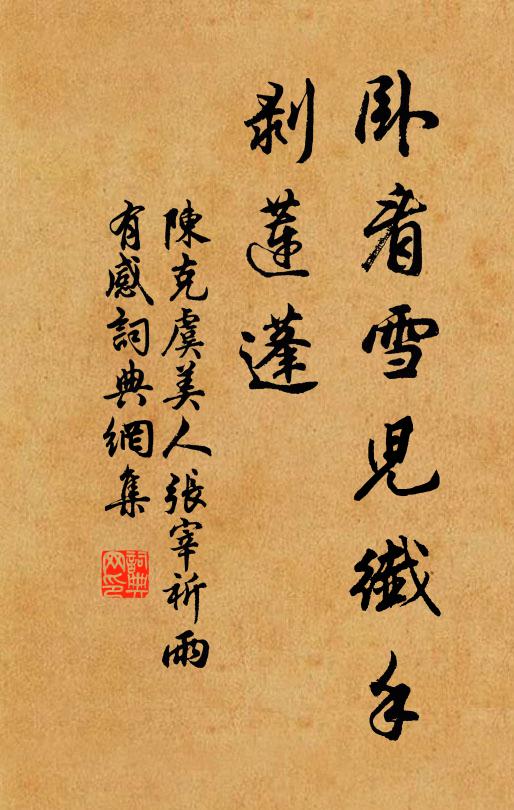 卧看雪兒纖手
剥蓮蓬
陳克虞美人張宰祈雨
有感詞典網集
詞典网印